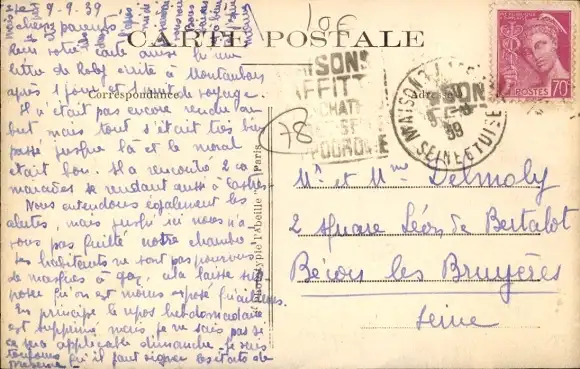 9-9-39
CARTE POSTALE
Correspondance
Chers parents
Reçu votre carte ainsi qu'une
lettre de Roby arrivé à Montauban
après 1 jour et 1 nuit de voyage.
Il n'était pas encore rendu au
but mais tout s'était très bien
passé jusque là et le moral
était bon. Il a rencontré 2 ca-
marades se rendant aussi à Castres.
Nous entendons également les
alertes, mais jusqu'ici nous n'a-
vons pas quitté notre chambre.
Les habitants ne sont pas pourvus
de masques à gaz, cela laisse sup-
poser qu'on est moins exposé qu'ailleurs.
En principe le repos hebdomadaire
est supprimé mais je ne sais pas si
ce sera applicable dimanche. Je sais
toujours qu'il faut signer les états de
10F
78
MAISONS
LAFFITTE
CHAT
ST
MAISONS
39
SEINE ET OISE
POSTES 70c
Phototypie l'Abeille Paris
Mr et Mme Delmoly
2 square Léon de Bertalot
Bécon les Bruyères
Seine